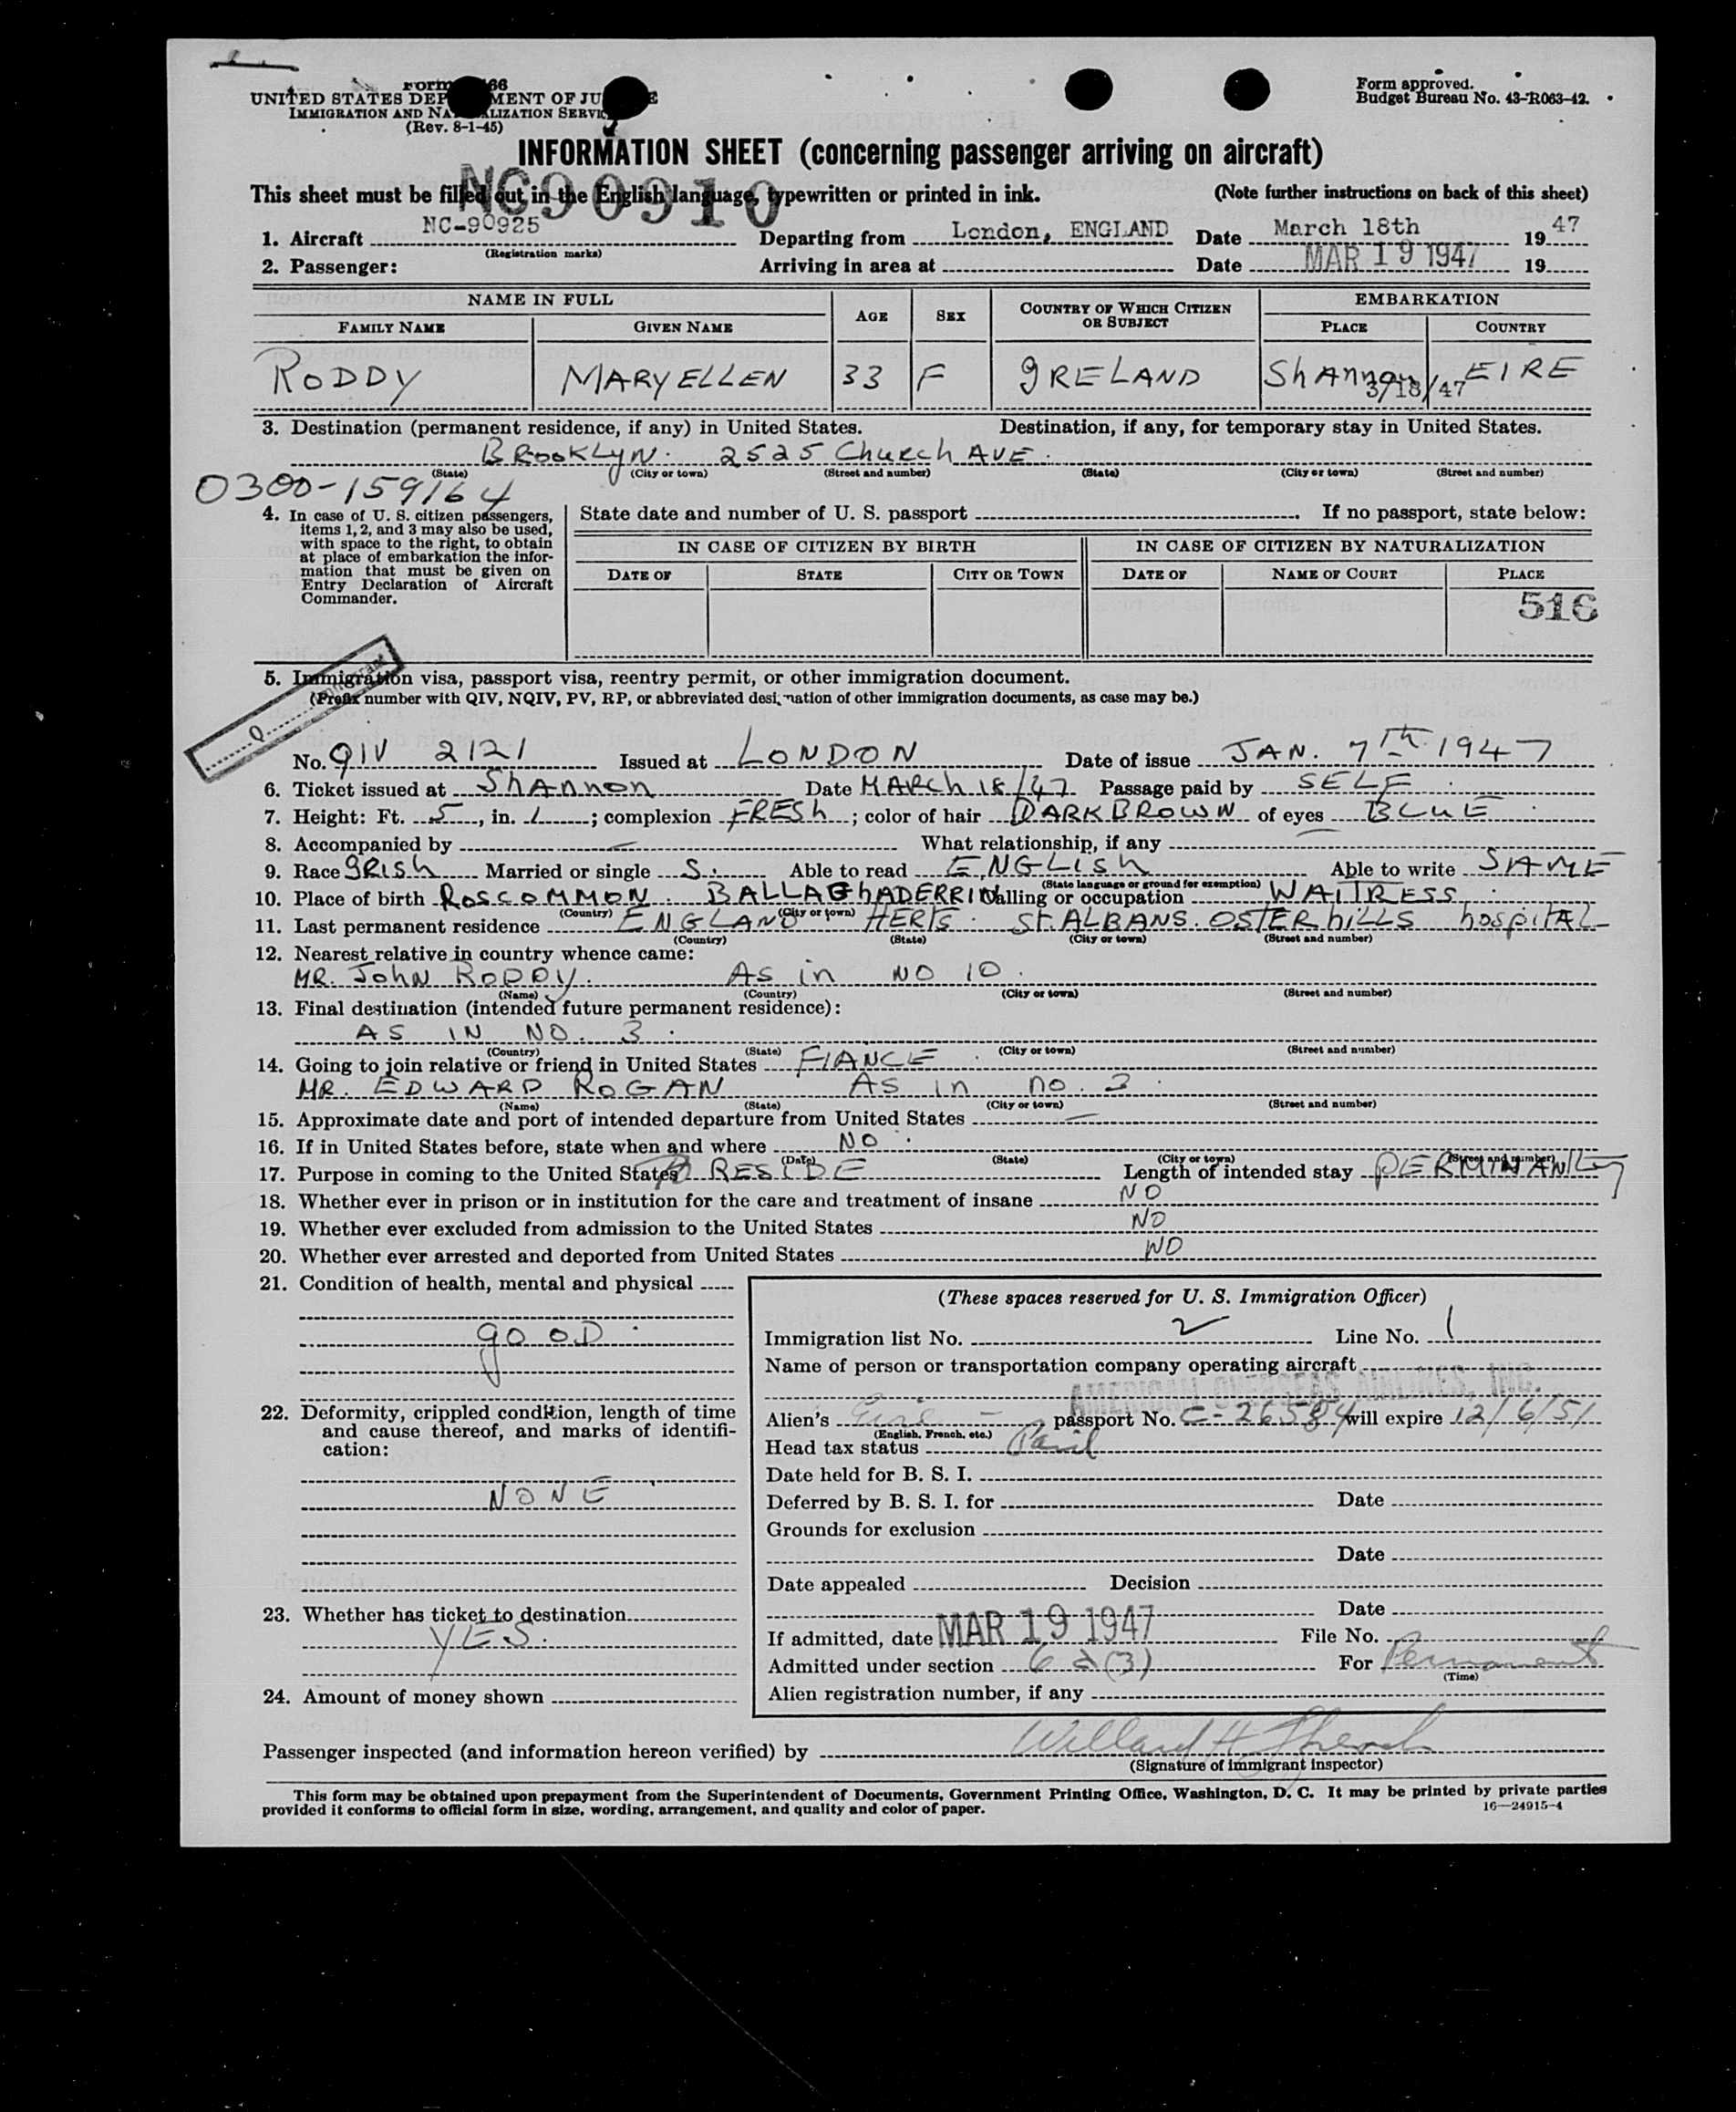 Form 66
UNITED STATES DEP MENT OF JU E
IMMIGRATION AND NA ALIZATION SERVIC
(Rev. 8-1-45)
Form approved.
Budget Bureau No. 43-R063-42.
INFORMATION SHEET (concerning passenger arriving on aircraft)
NC90910
This sheet must be filled out in the English language, typewritten or printed in ink. (Note further instructions on back of this sheet)
1. Aircraft NC-90925 Departing from London, ENGLAND Date March 18th 1947
(Registration marks)
2. Passenger: Arriving in area at Date MAR 19 1947 19
NAME IN FULL AGE SEX COUNTRY OF WHICH CITIZEN OR SUBJECT EMBARKATION
FAMILY NAME GIVEN NAME PLACE COUNTRY
RODDY MARY ELLEN 33 F IRELAND ShANNON EIRE
3/18/47
3. Destination (permanent residence, if any) in United States. Destination, if any, for temporary stay in United States.
BROOKLYN. 2525 Church AVE.
(State) (City or town) (Street and number) (State) (City or town) (Street and number)
0300-159164
4. In case of U. S. citizen passengers, items 1, 2, and 3 may also be used, with space to the right, to obtain at place of embarkation the information that must be given on Entry Declaration of Aircraft Commander.
State date and number of U. S. passport . If no passport, state below:
IN CASE OF CITIZEN BY BIRTH IN CASE OF CITIZEN BY NATURALIZATION
DATE OF STATE CITY OR TOWN DATE OF NAME OF COURT PLACE
516
5. Immigration visa, passport visa, reentry permit, or other immigration document.
(Prefix number with QIV, NQIV, PV, RP, or abbreviated designation of other immigration documents, as case may be.)
Q
No. QIV 2121 Issued at LONDON Date of issue JAN. 7th 1947
6. Ticket issued at ShANNON Date MARCh 18/47 Passage paid by SELF
7. Height: Ft. 5, in. 1; complexion FRESh; color of hair DARK BROWN of eyes BLUE
8. Accompanied by — What relationship, if any
9. Race IRISh Married or single S. Able to read ENGLISh Able to write SAME
(State language or ground for exemption)
10. Place of birth ROSCOMMON. BALLAGhADERRIN Calling or occupation WAITRESS
(Country) (City or town)
11. Last permanent residence ENGLAND HERTS. ST. ALBANS. OSTERhILLS hospITAL
(Country) (State) (City or town) (Street and number)
12. Nearest relative in country whence came:
MR. JOhN RODDY. As in NO 10.
(Name) (Country) (City or town) (Street and number)
13. Final destination (intended future permanent residence):
AS IN NO. 3.
(Country) (State) (City or town) (Street and number)
14. Going to join relative or friend in United States FIANCE
MR. EDWARD ROGAN As in no. 3.
(Name) (State) (City or town) (Street and number)
15. Approximate date and port of intended departure from United States —
16. If in United States before, state when and where NO.
(Date) (State) (City or town) (Street and number)
17. Purpose in coming to the United States RESIDE Length of intended stay PERMINANTLY
18. Whether ever in prison or in institution for the care and treatment of insane NO
19. Whether ever excluded from admission to the United States NO
20. Whether ever arrested and deported from United States NO
21. Condition of health, mental and physical
gooD
22. Deformity, crippled condition, length of time and cause thereof, and marks of identification:
NONE
23. Whether has ticket to destination
YES.
24. Amount of money shown
(These spaces reserved for U. S. Immigration Officer)
Immigration list No. 2 Line No. 1
Name of person or transportation company operating aircraft
AMERICAN OVERSEAS AIRLINES, INC.
Alien's Eire passport No. C-26584 will expire 12/6/51
(English, French, etc.)
Head tax status Paid
Date held for B. S. I.
Deferred by B. S. I. for Date
Grounds for exclusion
Date
Date appealed Decision
Date
If admitted, date MAR 19 1947 File No.
Admitted under section 6 a (3) For Permanent
(Time)
Alien registration number, if any
Passenger inspected (and information hereon verified) by Willard H.
(Signature of immigrant inspector)
This form may be obtained upon prepayment from the Superintendent of Documents, Government Printing Office, Washington, D. C. It may be printed by private parties
provided it conforms to official form in size, wording, arrangement, and quality and color of paper.
16—24915-4